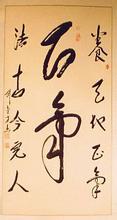 養天地正氣
正氣
法古今完人